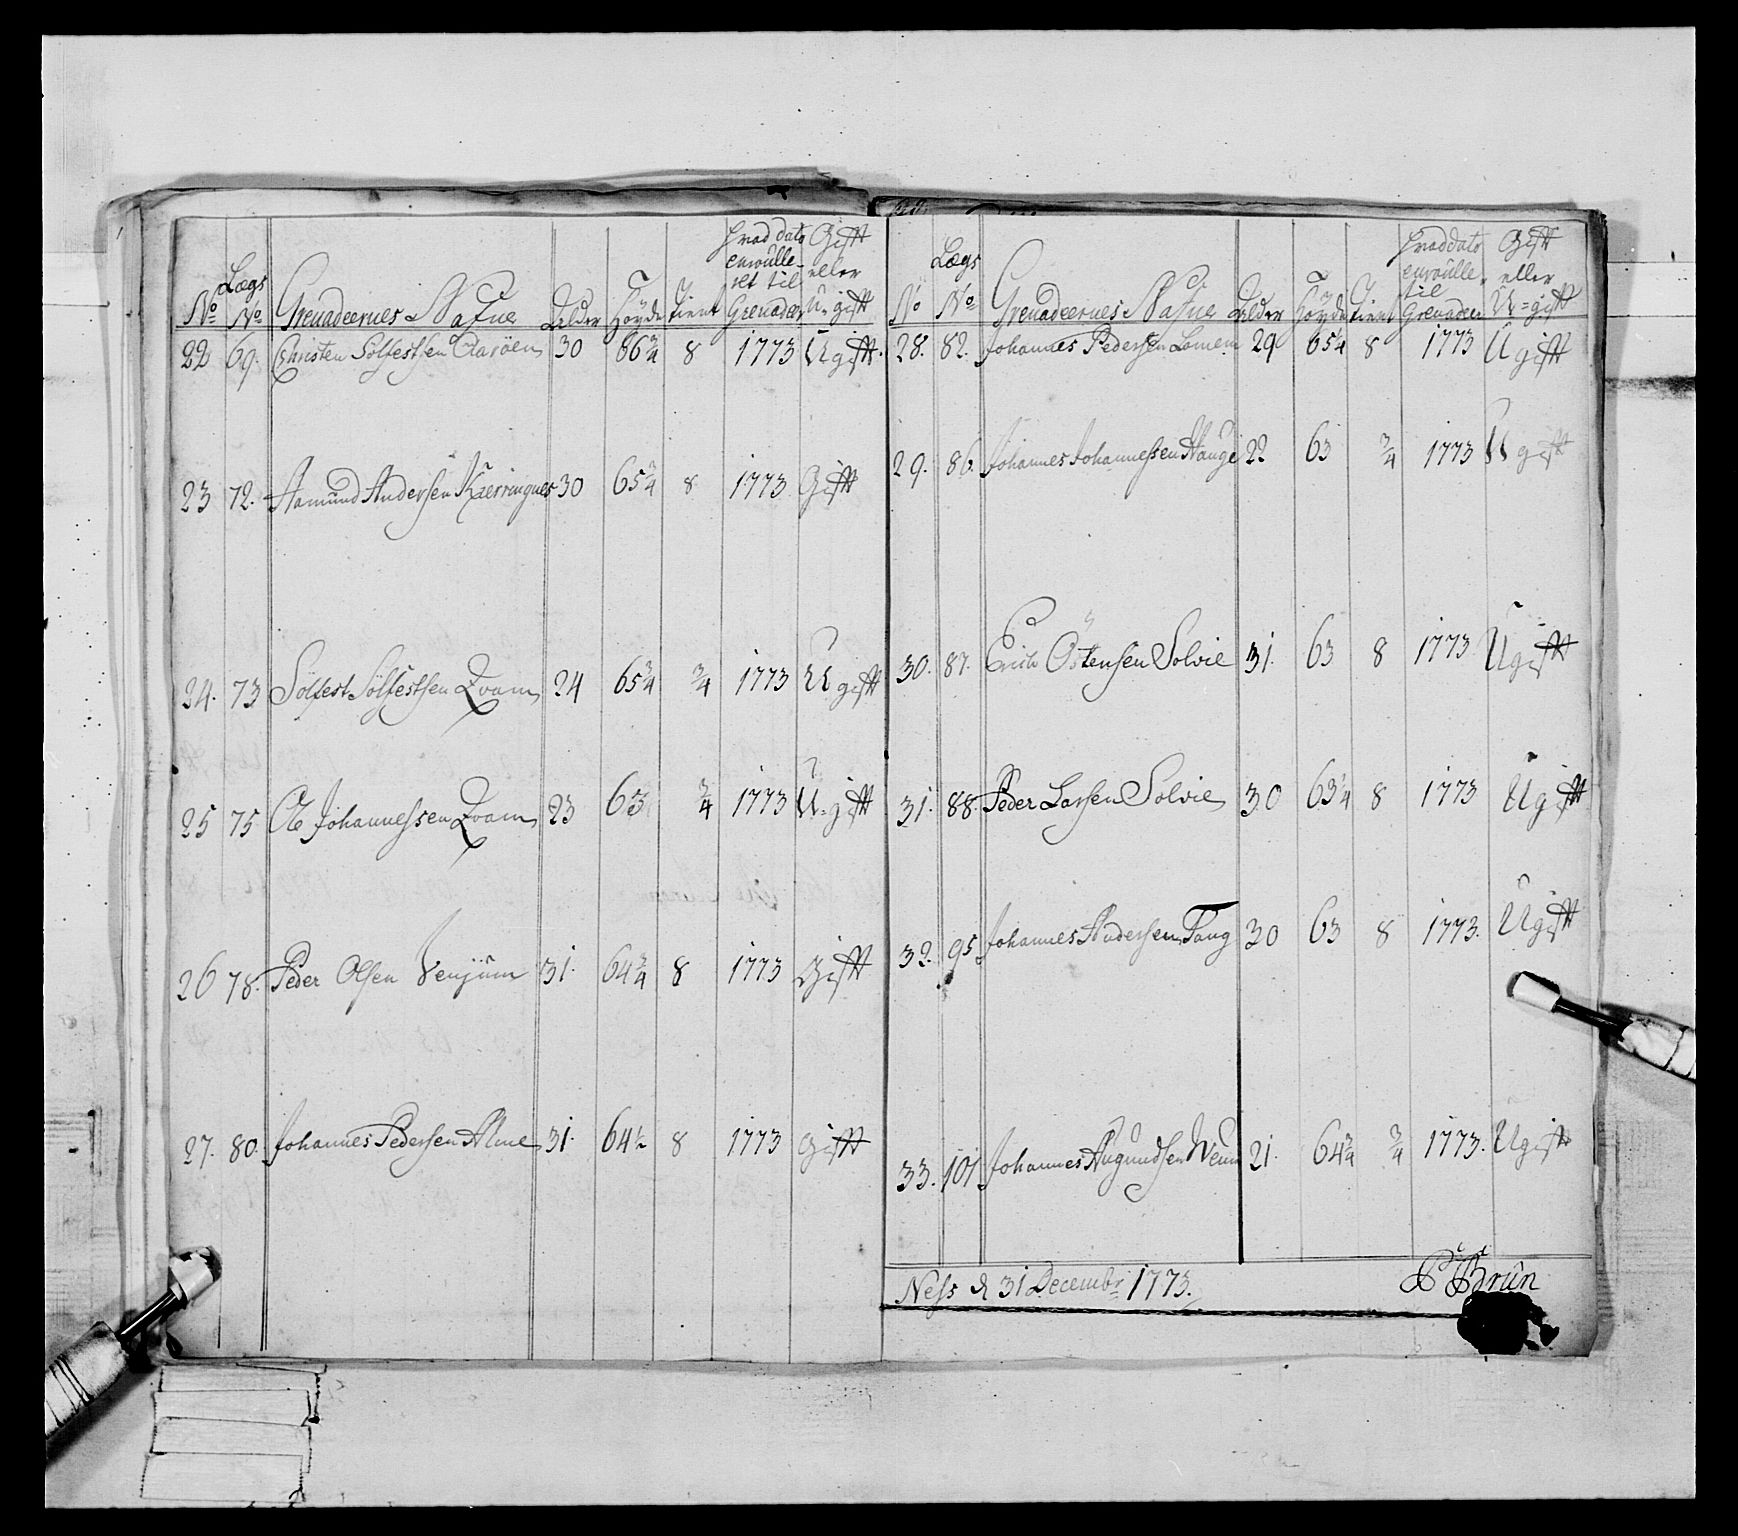 No Lægs No Grenadeernes Nafne Alder Høyde tient hvad dato enroulleret til Grenadeer Gift eller U-gift
22 69. Christen Sølfestsen Aarøen 30 66¾ 8 1773 Ugift.
23 72. Aamund Andersen Kierringnes 30 65¾ 8 1773 Gift
24. 73 Sølfest Sølfestsen Qvam 24 65¾ ¾ 1773 Ugift
25 75 Ole Johannessen Qvam 23 63 ¾ 1773 U-gift
26 78. Peder Olsen Venjum 31. 64¾ 8 1773 Gift
27. 80. Johannes Pedersen Alme 31. 64½ 8 1773 Gift
No Lægs No Grenadeernes Nafne Alder Høyde tient hvad dato enroulle til Grenadeer Gift eller U=gift
28. 82. Johannes Pedersen Lomen 29 65¼ 8 1773 Ugift
29. 86. Johannes Johannessen Hauge 22 63 ¾ 1773 Ugift
30. 87. Erich Östensen Solvie 31. 63 8 1773 Ugift
31. 88. Peder Larsen Solvie 30 63¼ 8 1773 Ugift
32. 95 Johannes Andersen Fang 30 63 8 1773. Ugift
33. 101 Johannes Augundsen Wenn 21. 64¾ ¾ 1773. Ugift
Ness d 31 Decembr 1773.
Brun